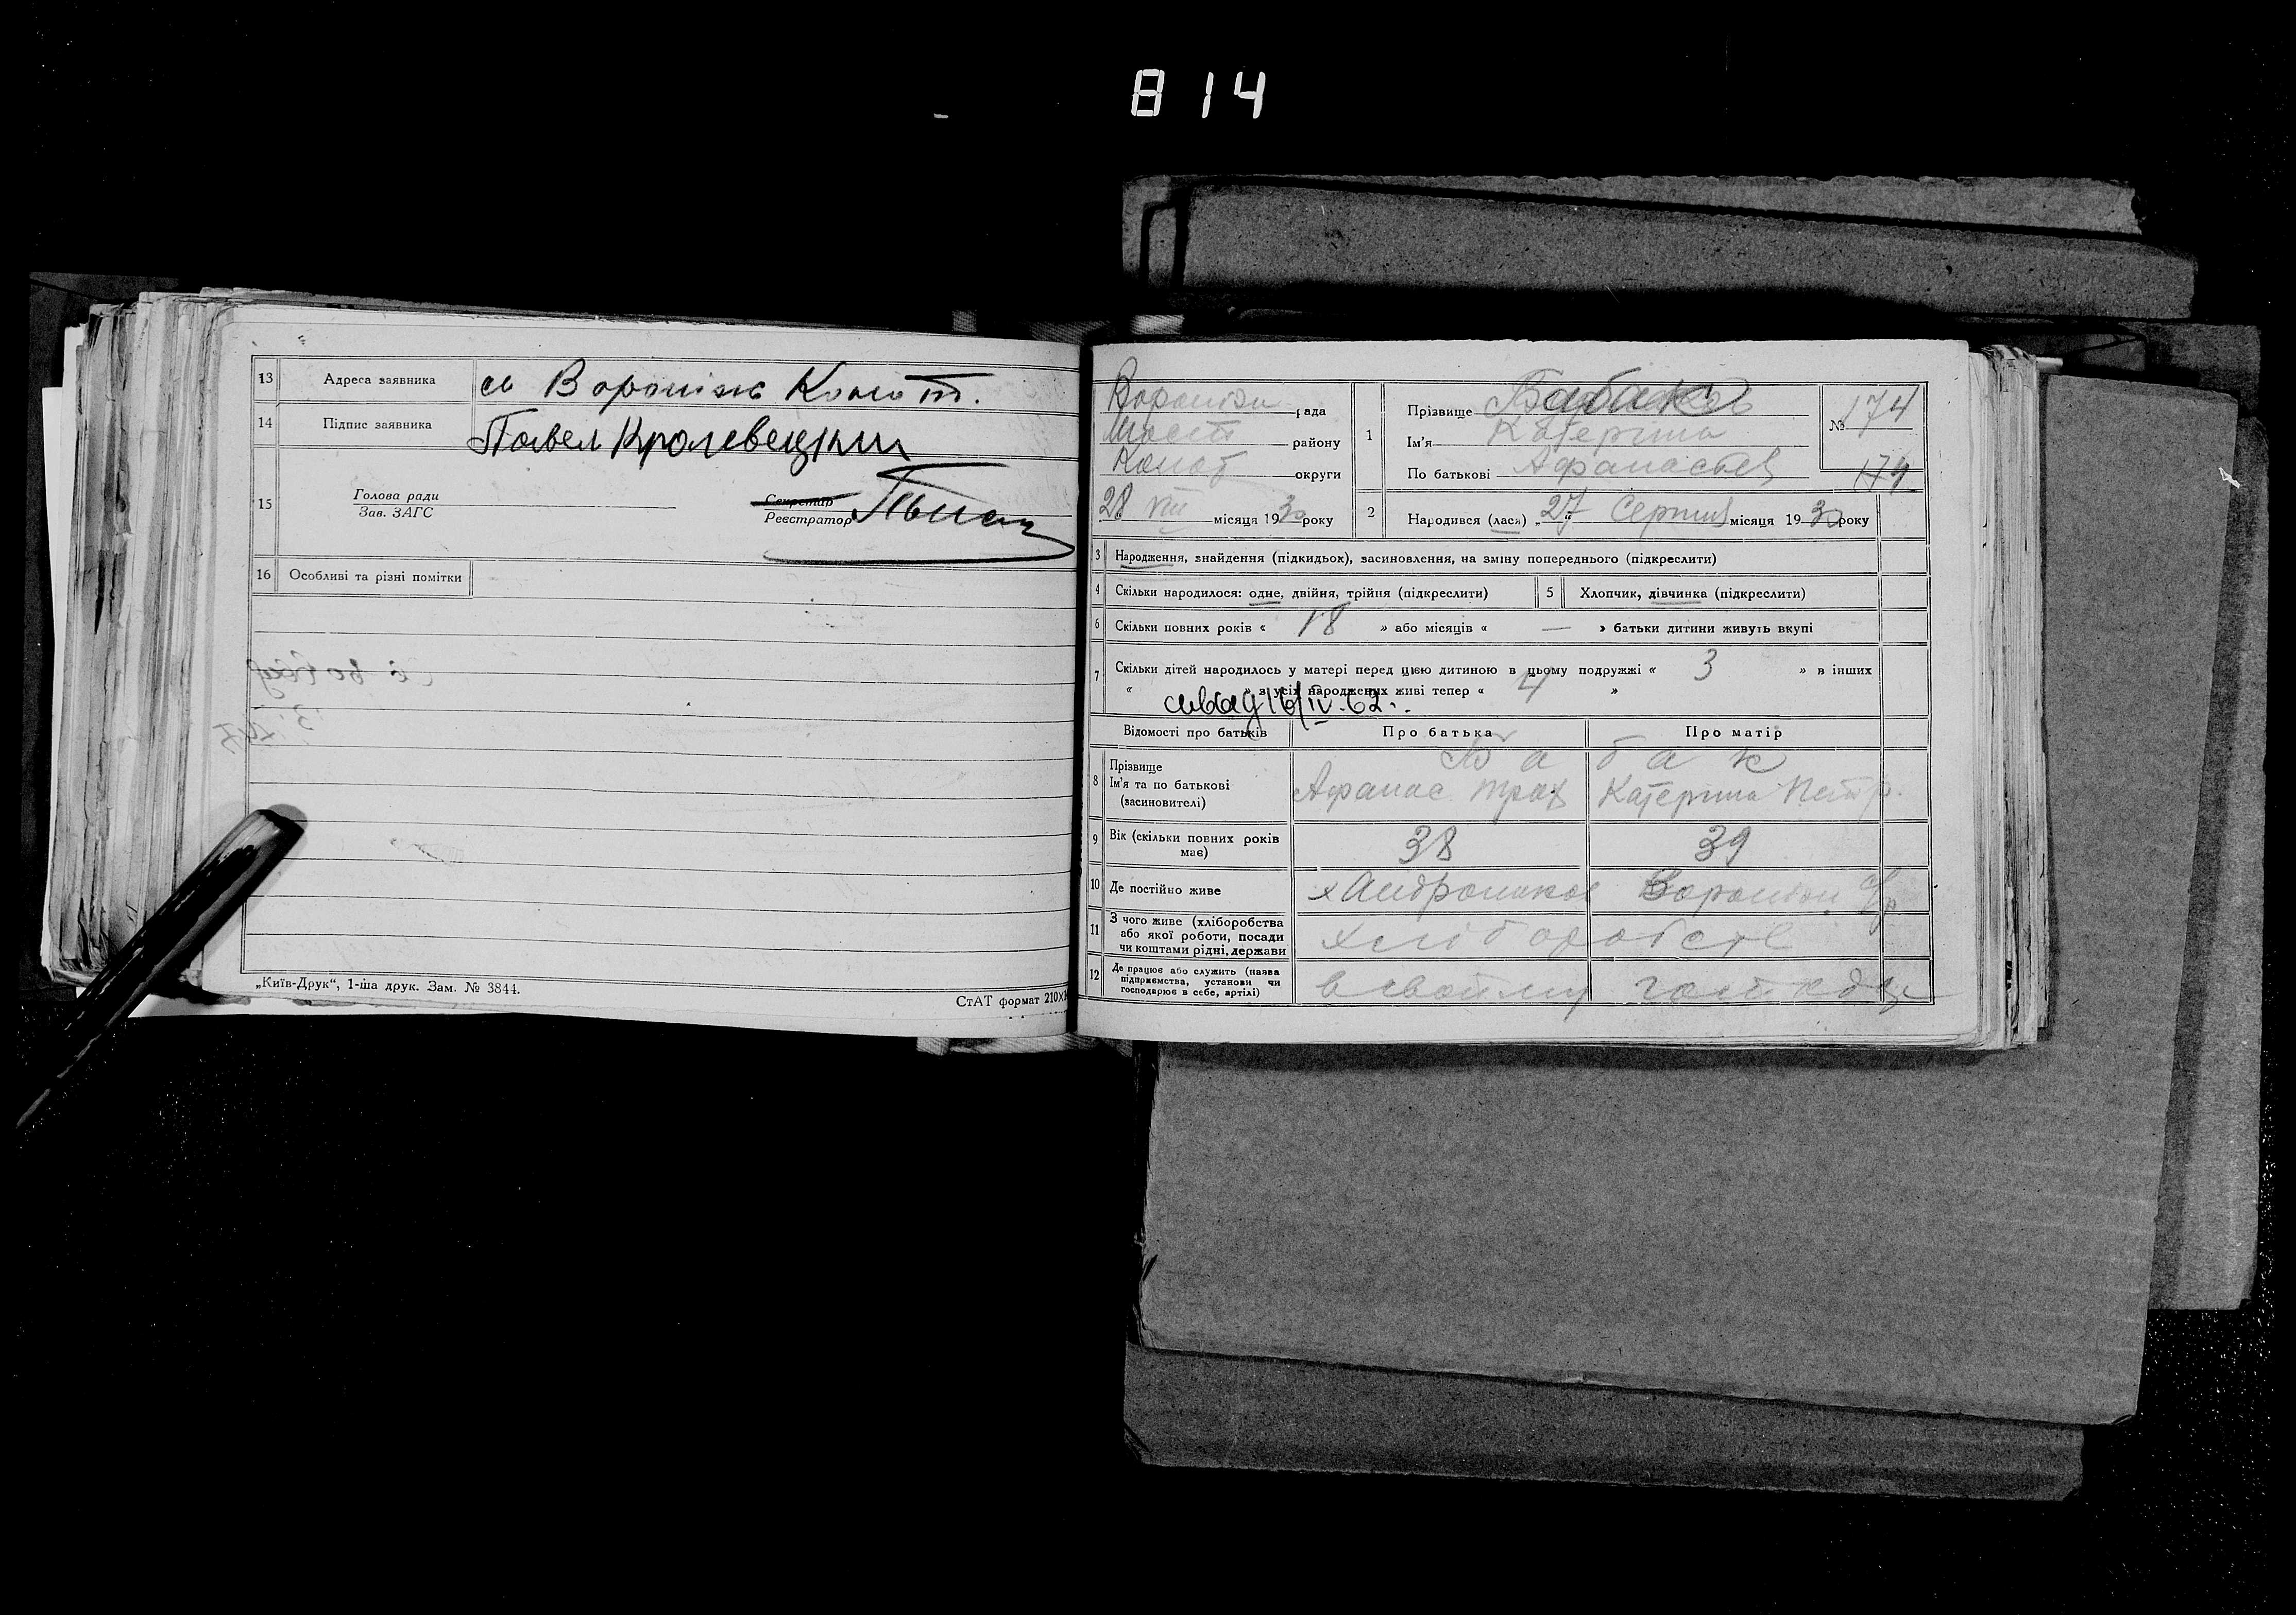 814
13 Адреса заявника с Вороніж Коно т.
14 Підпис заявника Павел Кролевецкий
15 Голова ради
Зав. ЗАГС
Секретар
Реєстратор
16 Особливі та різні помітки
„Київ-Друк“, 1-ша друк. Зам. № 3844.
СтАТ формат 210х
Вороніж рада
Шост району
Коноt округи
28 VIII місяця 1930 року
1 Прізвище Бабак
Ім'я Катерина
По батькові Афанасьев
№ 174
174
2 Народився (лася) „27 Серпня місяця 1930 року
3 Народження, знайдення (підкидьох), засиновлення, на зміну попереднього (підкреслити)
4 Скільки народилося: одне, двійня, трійня (підкреслити) 5 Хлопчик, дівчинка (підкреслити)
6 Скільки повних років « 18 » або місяців « — » батьки дитини живуть вкупі
7 Скільки дітей народилось у матері перед цією дитиною в цьому подружжі « 3 » в інших
« » з усіх народжених живі тепер « 4 »
16/IV-62.
Відомості про батьків Про батька Про матір
8 Прізвище Бабак
Ім'я та по батькові Афанас Катерина Петр.
(засновителі)
9 Вік (скільки повних років має) 38 39
10 Де постійно живе х Андроников Вороніж с/р
11 З чого живе (хліборобства або якої роботи, посади чи коштами рідні, держави хліборобств
12 Де працює або служить (назва підприємства, установи чи господарює в себе, артілі) в своїму